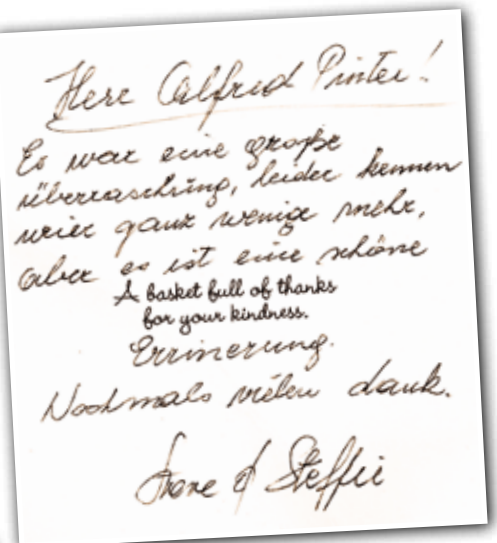 Herr Alfred Pinter!
Es war eine große
überraschung, leider kennen
wier ganz wenige mehr,
aber es ist eine schöne
A basket full of thanks
for your kindness.
Errinerung.
Nochmals vielen dank.
& Steffie